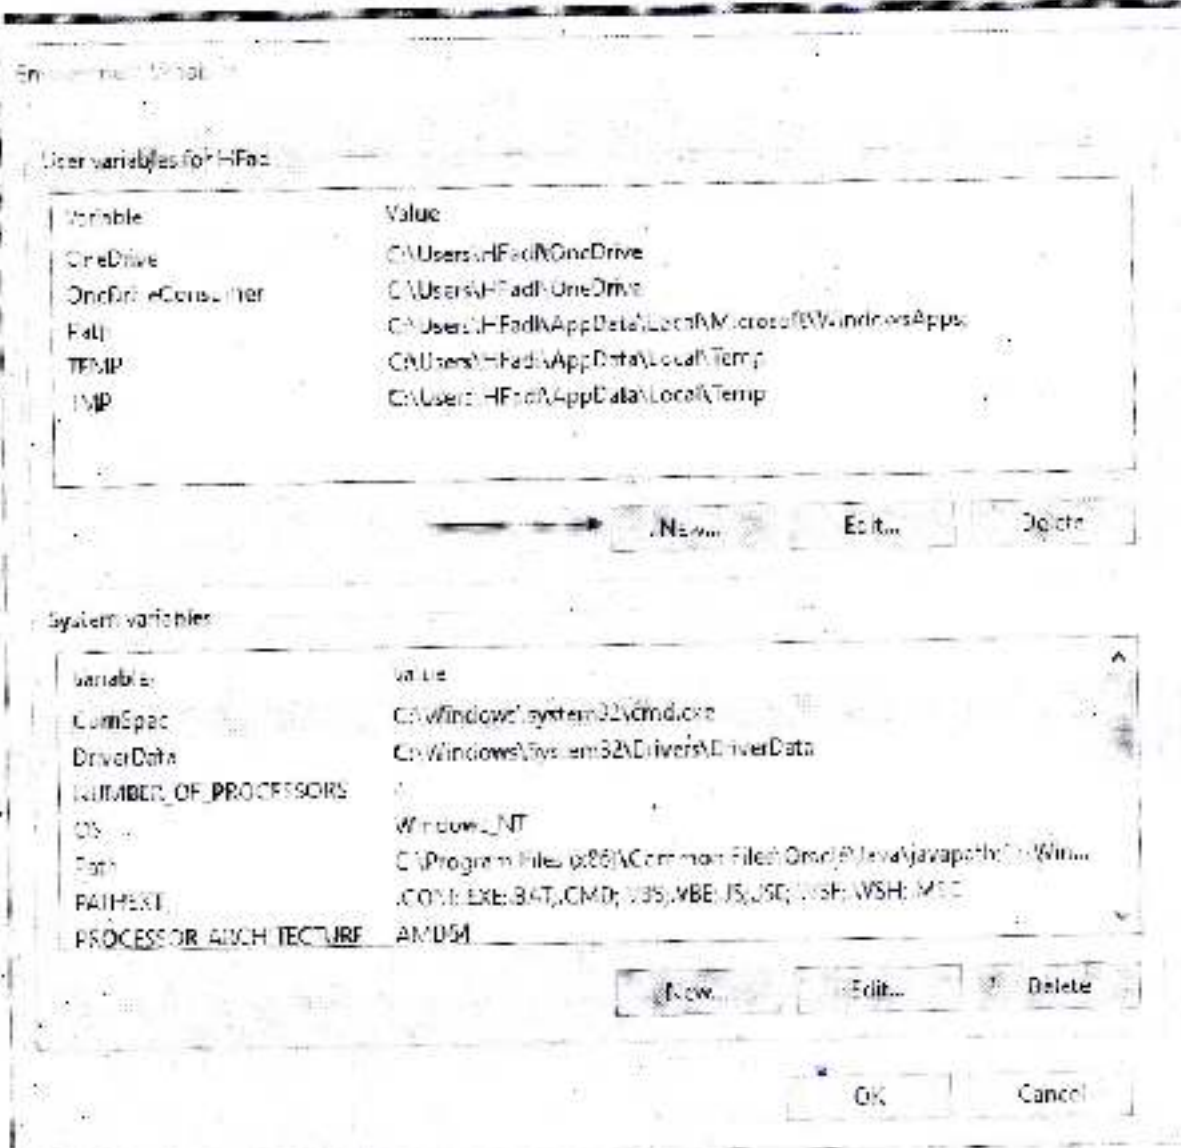 Environment Variables
User variables for HFadl
Variable Value
OneDrive C:\Users\HFadl\OneDrive
OneDriveConsumer C:\Users\HFadl\OneDrive
Path C:\Users\HFadl\AppData\Local\Microsoft\WindowsApps;
TEMP C:\Users\HFadl\AppData\Local\Temp
TMP C:\Users\HFadl\AppData\Local\Temp
New... Edit... Delete
System variables
Variable Value
ComSpec C:\Windows\system32\cmd.exe
DriverData C:\Windows\System32\Drivers\DriverData
NUMBER_OF_PROCESSORS
OS Windows_NT
Path C:\Program Files (x86)\Common Files\Oracle\Java\javapath;C:\Win...
PATHEXT .COM;.EXE;.BAT;.CMD;.VBS;.VBE;.JS;.JSE;.WSF;.WSH;.MSC
PROCESSOR_ARCHITECTURE AMD64
New... Edit... Delete
OK Cancel